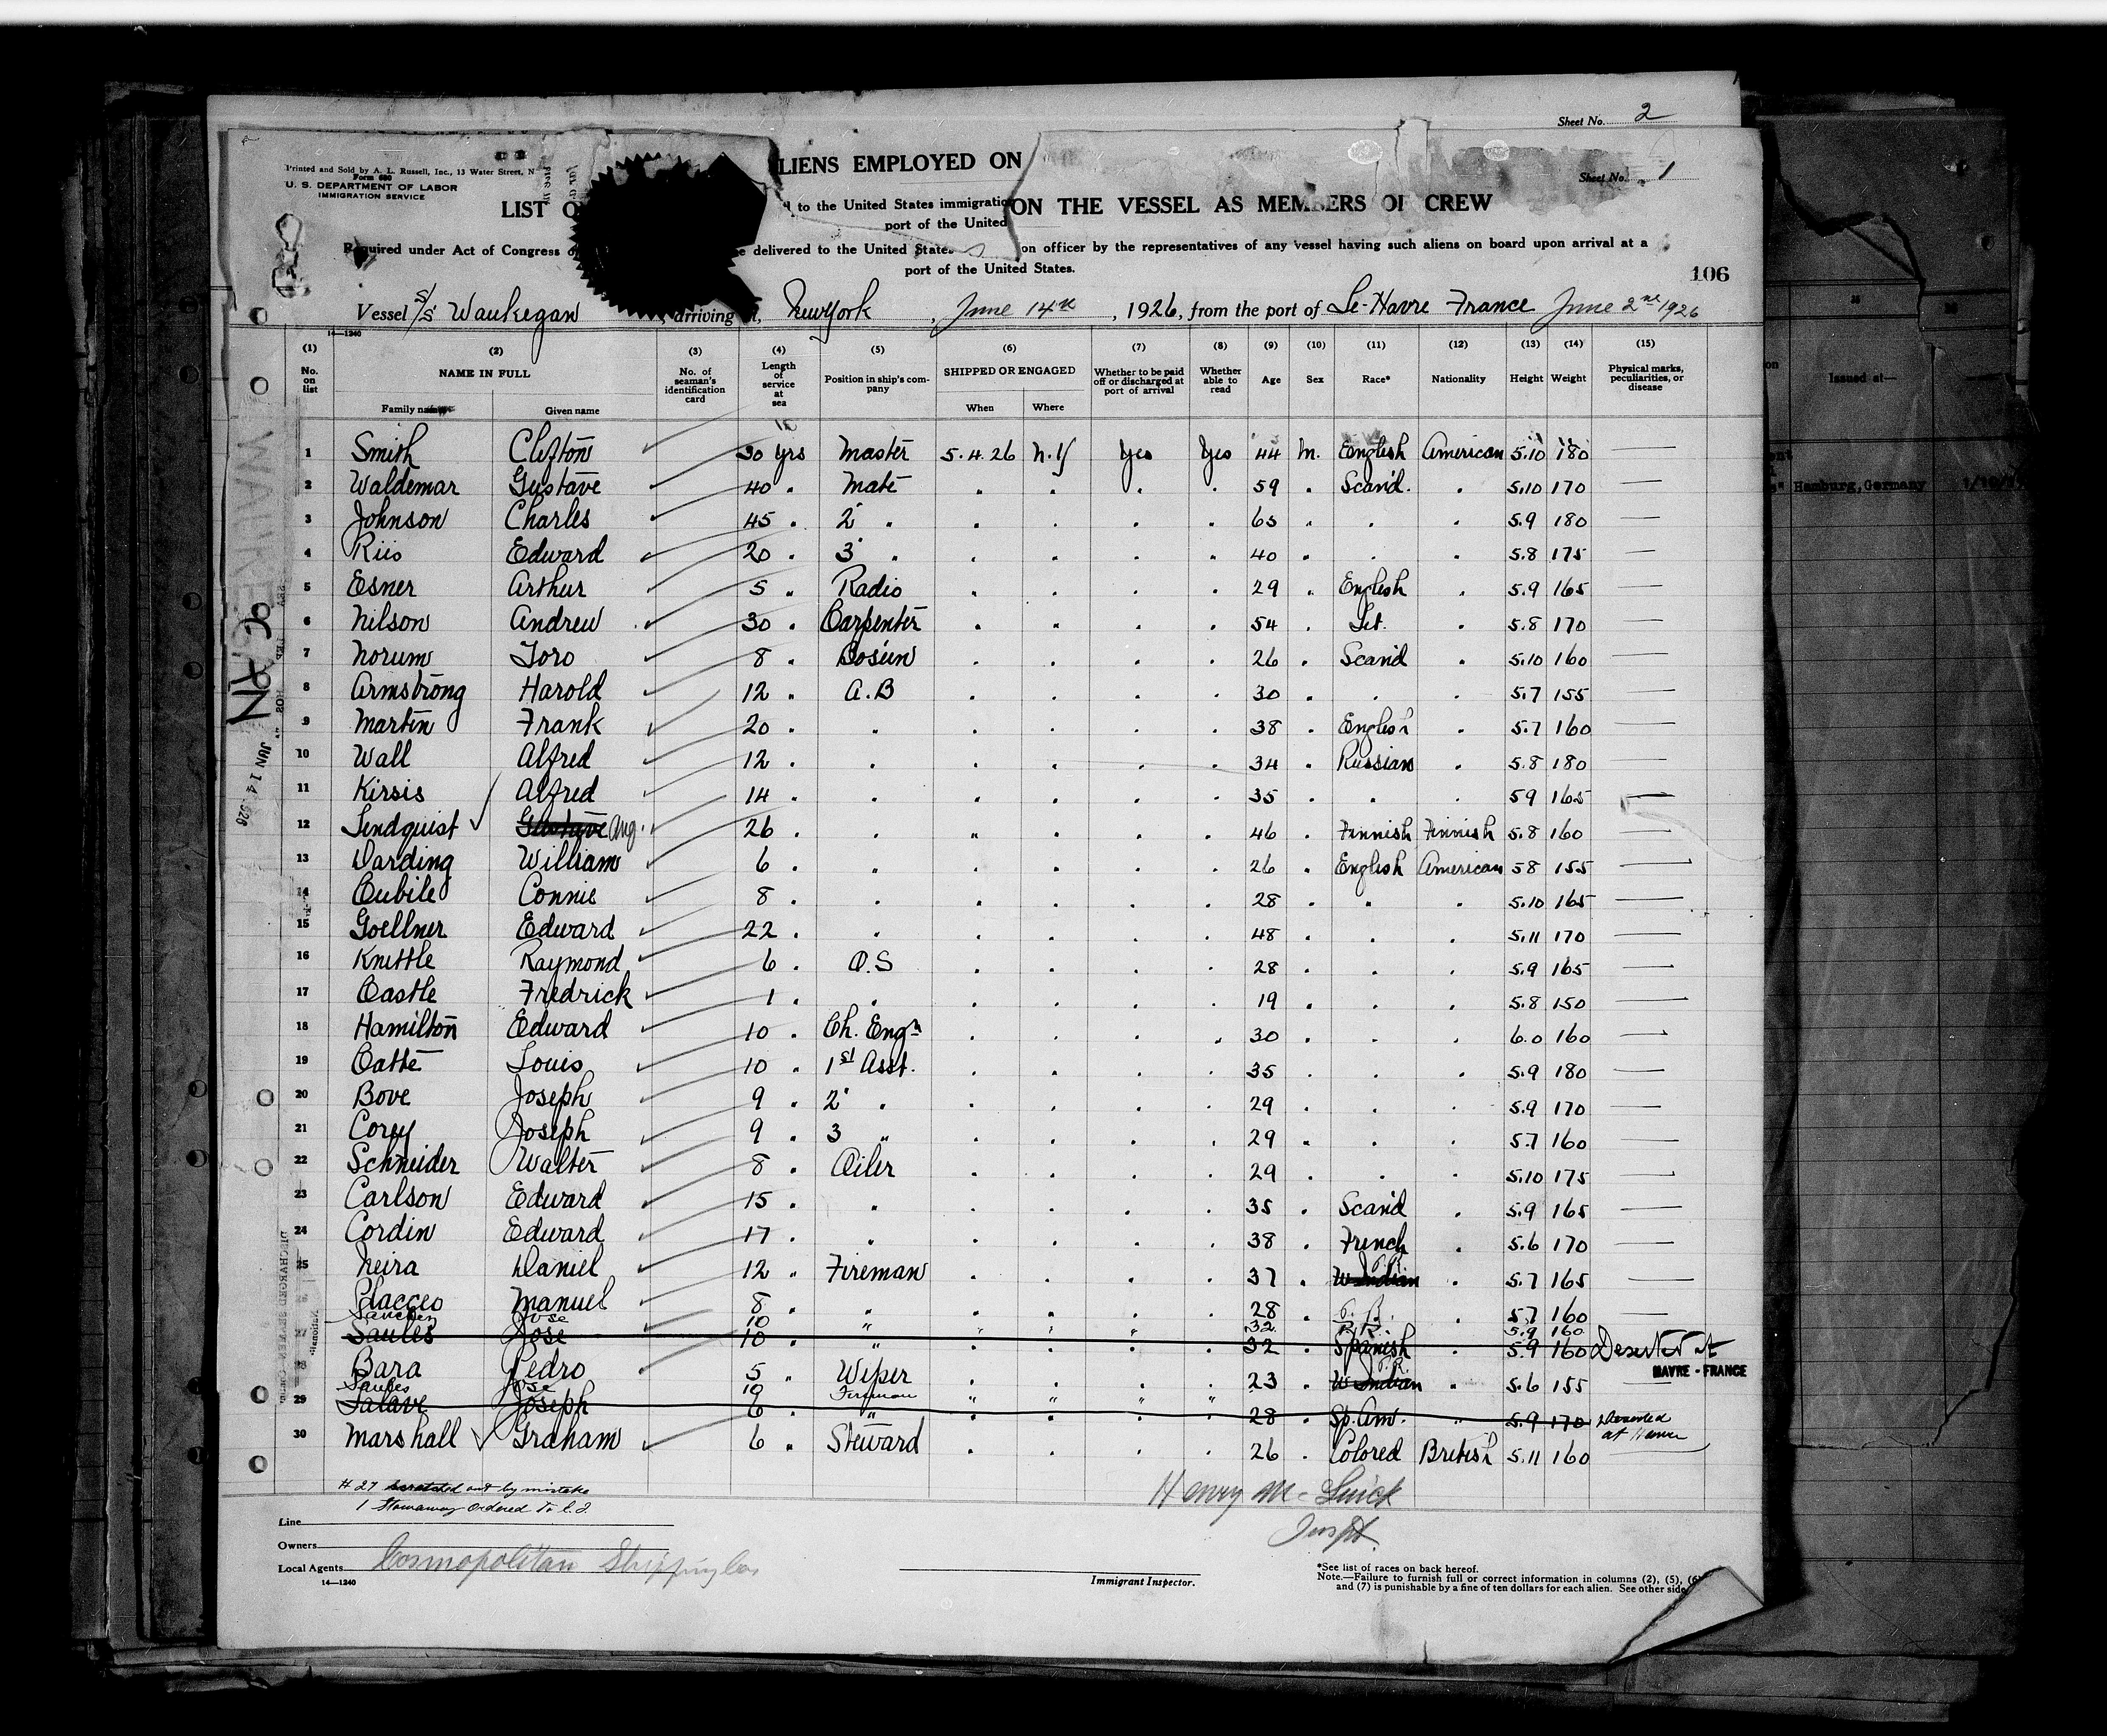 Sheet No. 2
Printed and Sold by A. L. Russell, Inc., 13 Water Street, N
Form 680
U. S. DEPARTMENT OF LABOR
IMMIGRATION SERVICE
LIENS EMPLOYED ON
Sheet No. 1
LIST O
d to the United States immigratio
ON THE VESSEL AS MEMBERS OF CREW
port of the United
Required under Act of Congress o
e delivered to the United States on officer by the representatives of any vessel having such aliens on board upon arrival at a
port of the United States.
106
Vessel S/S Waukegan , arriving at, New York , June 14th , 1926, from the port of Le-Havre France June 2nd 1926
14—1240
(1) (2) (3) (4) (5) (6) (7) (8) (9) (10) (11) (12) (13) (14) (15)
No. on list NAME IN FULL No. of seaman's identification card Length of service at sea Position in ship's company SHIPPED OR ENGAGED Whether to be paid off or discharged at port of arrival Whether able to read Age Sex Race* Nationality Height Weight Physical marks, peculiarities, or disease
Family name Given name When Where
1 Smith Clifton 30 yrs Master 5.4.26 N.Y Yes Yes 44 M. English American 5.10 180 —
2 Waldemar Gustave 40 " Mate " " " " 59 " Scand. " 5.10 170 —
3 Johnson Charles 45 " 2 " " " " " 65 " " " 5.9 180 —
4 Riis Edward 20 " 3 " " " " " 40 " " " 5.8 175 —
5 Esner Arthur 5 " Radio " " " " 29 " English " 5.9 165 —
6 Nilson Andrew 30 " Carpenter " " " " 54 " Let. " 5.8 170 —
7 Norum Toro 8 " Bosun " " " " 26 " Scand " 5.10 160 —
8 Armstrong Harold 12 " A.B " " " " 30 " " " 5.7 155 —
9 Martin Frank 20 " " " " " " 38 " English " 5.7 160 —
10 Wall Alfred 12 " " " " " " 34 " Russian " 5.8 180 —
11 Kirsis Alfred 14 " " " " " " 35 " " " 59 165 —
12 Lindquist Gustave Aug. 26 " " " " " " 46 " Finnish Finnish 5.8 160 —
13 Darding William 6 " " " " " " 26 " English American 58 155 —
14 Cubile Connie 8 " " " " " " 28 " " " 5.10 165 —
15 Goellner Edward 22 " " " " " " 48 " " " 5.11 170 —
16 Knittle Raymond 6 " O.S " " " " 28 " " " 5.9 165 —
17 Castle Fredrick 1 " " " " " " 19 " " " 5.8 150 —
18 Hamilton Edward 10 " Ch. Engr " " " " 30 " " " 6.0 160 —
19 Catte Louis 10 " 1st Asst. " " " " 35 " " " 5.9 180 —
20 Bove Joseph 9 " 2 " " " " " 29 " " " 5.9 170 —
21 Corey Joseph 9 " 3 " " " " " 29 " " " 5.7 160 —
22 Schneider Walter 8 " Oiler " " " " 29 " " " 5.10 175 —
23 Carlson Edward 15 " " " " " " 35 " Scand " 5.9 165 —
24 Cordin Edward 17 " " " " " " 38 " French " 5.6 170 —
25 Neira Daniel 12 " Fireman " " " " 37 " W Indian P.R. " 5.7 165 —
Placceo Manuel 8 " " " " " " 28 " P.R. " 5.7 160 —
Sanchez Jose 10 " " " " 32 P.R. 5.9 160
27 Saules Jose 10 " " " " " 32 " Spanish " 5.9 160 Deserted at
HAVRE - FRANCE
28 Bara Pedro 5 " Wiper " " " " 23 " W Indian P.R. " 5.6 155 —
Saules Jose 10 Fireman " " " "
29 Talave Joseph 6 " " " " " " 28 " Sp. Am. " 5.9 170 Deserted
at Havre
30 Marshall Graham 6 " Steward " " " " 26 " Colored British 5.11 160
#27 scratched out by mistake
1 Stowaway ordered to E.I.
Henry Mc
Inspt.
Line
Owners
Local Agents Cosmopolitan Shipping Co
14—1240
Immigrant Inspector.
*See list of races on back hereof.
Note.—Failure to furnish full or correct information in columns (2), (5), (6)
and (7) is punishable by a fine of ten dollars for each alien. See other side
WAUKEGAN
JUN 14 1926
Issued at—
Hamburg, Germany